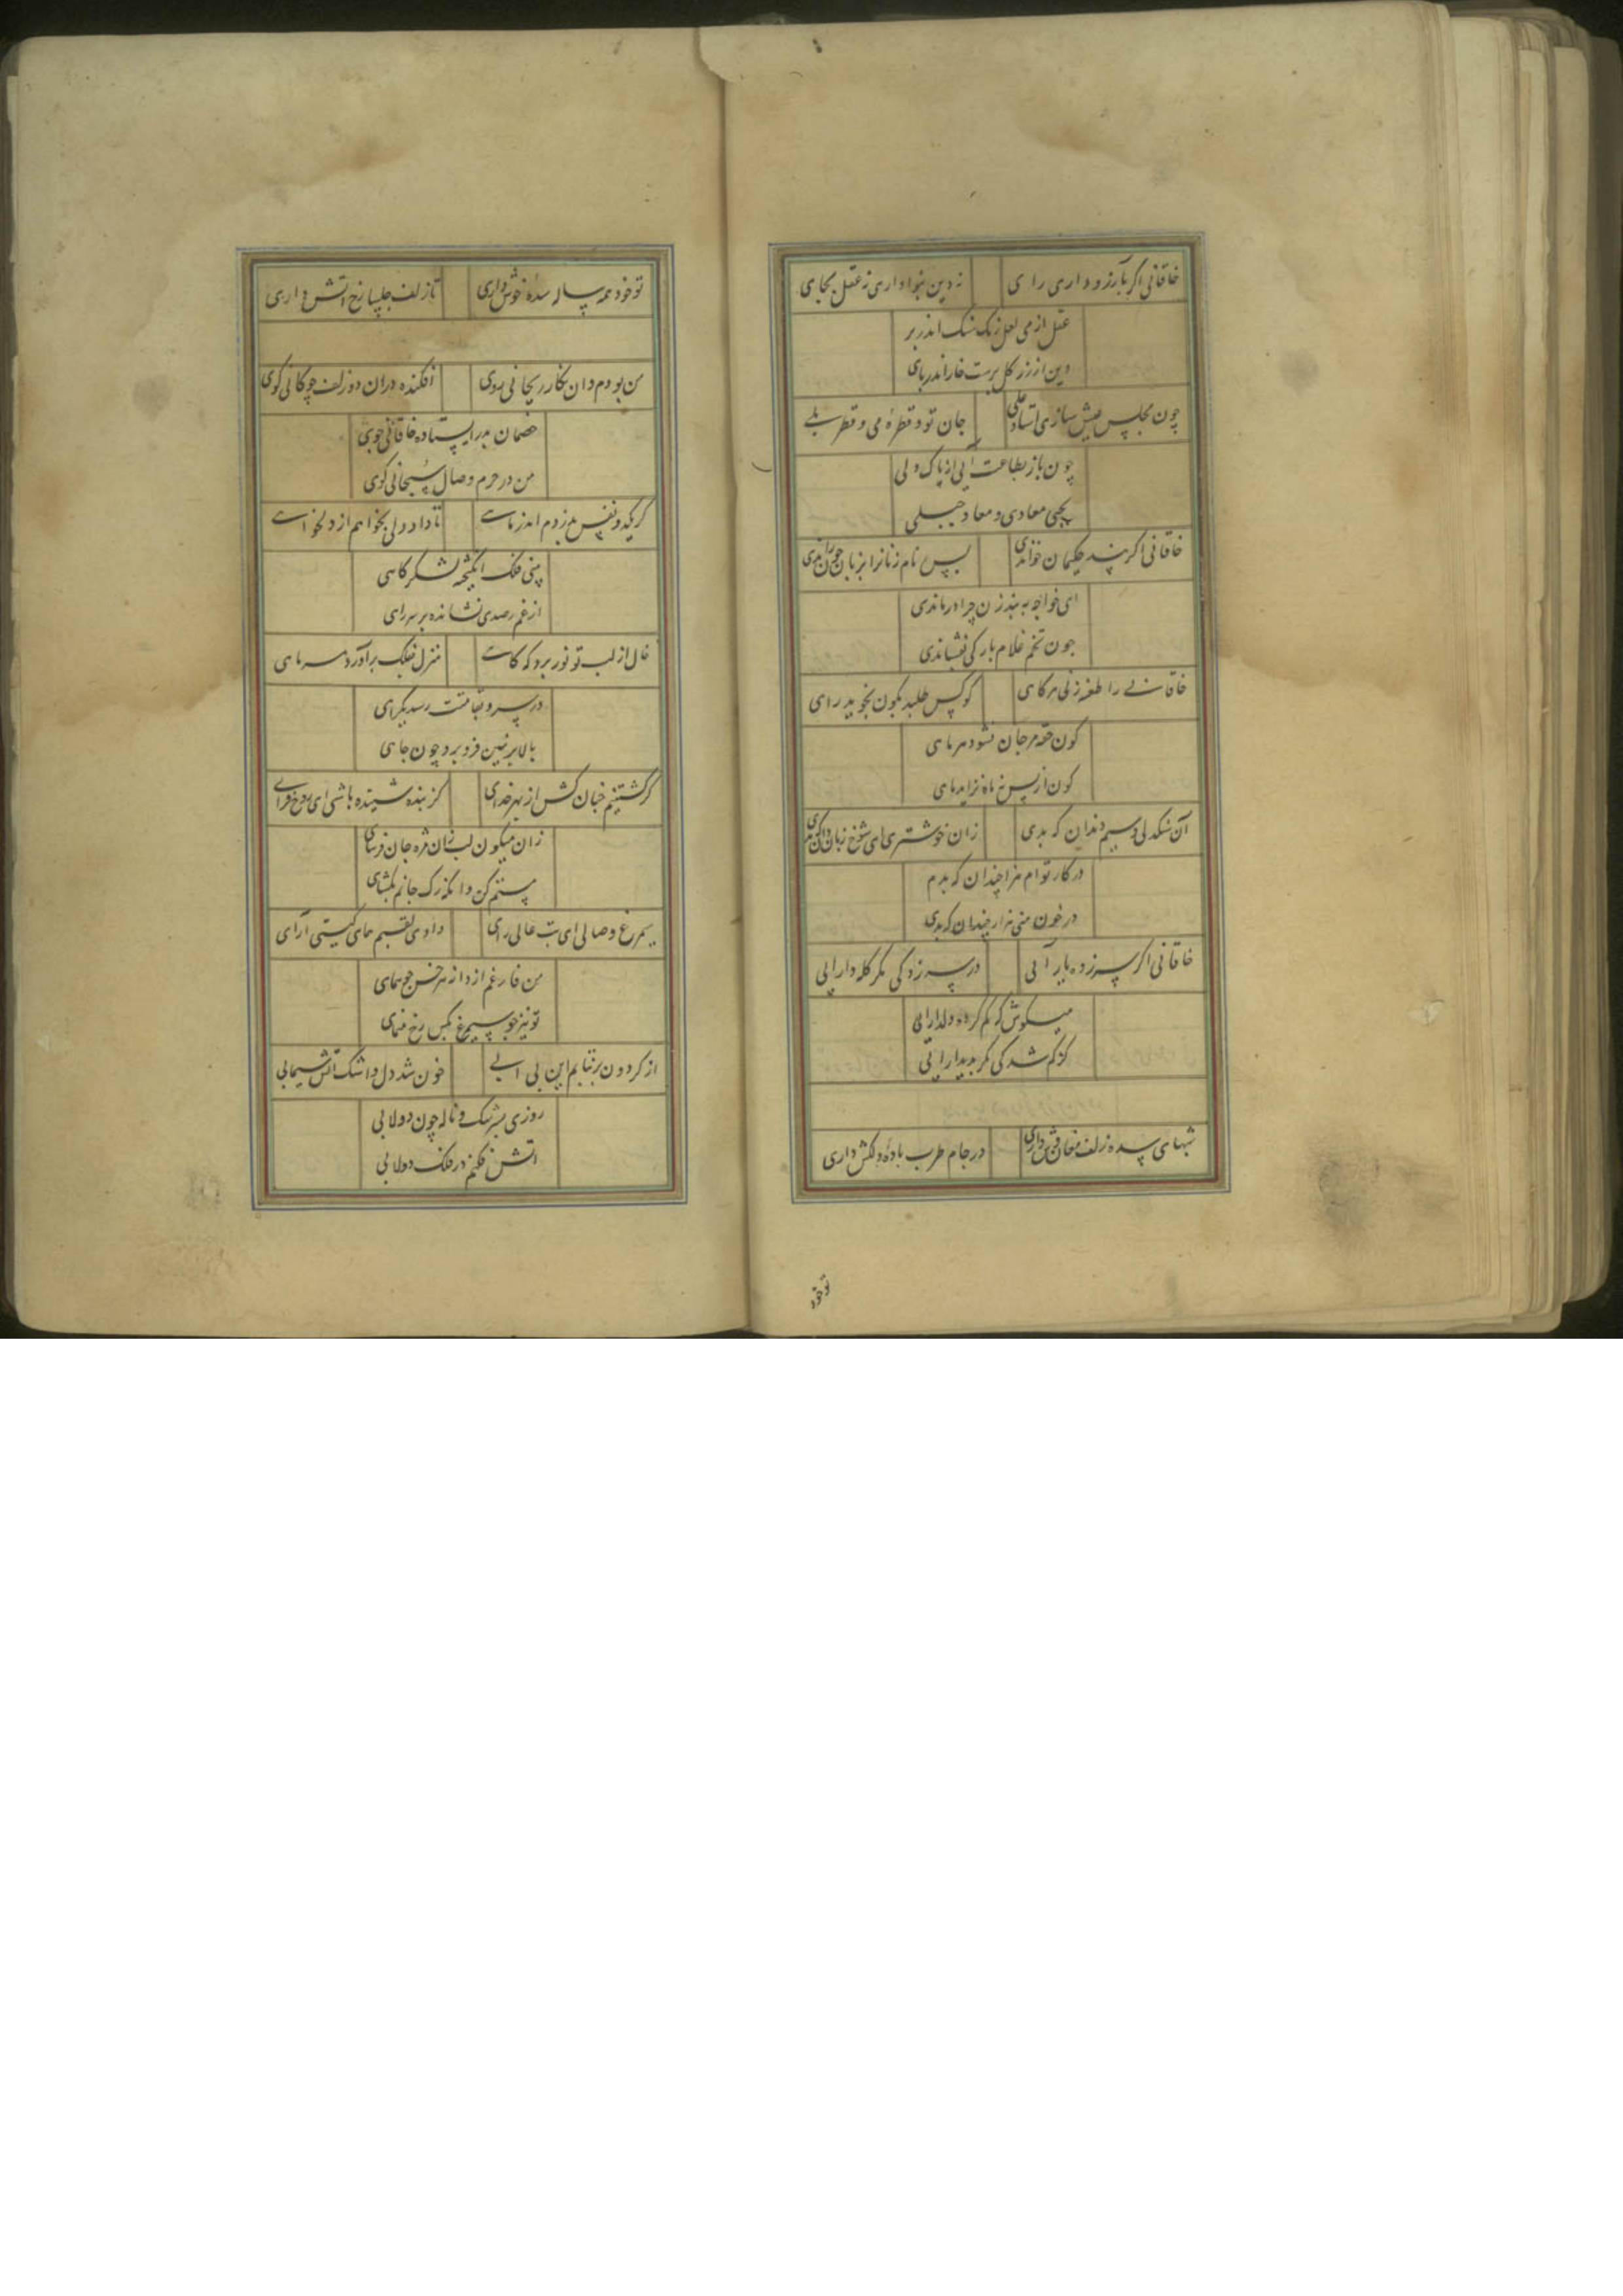 خاقانی اگر بآرزو داری رای
نه دین بنوا داری نه عقل بجای
عقل از می لعل رنگ سنگ اندر بر
دین از زر گل پرست خار اندر پای
چون مجلس عیش سازی استاد علی
جان تو و قطرهٔ می و قطر بلے
چون باز بطاعت آیی از پاک دلی
یحیی معاذی و معاذ جبلی
خاقانی اگر پند حکیمان خواندی
پس نام زنانرا بزبان چون راندی
ای خواجه به بند زن چرا درماندی
چون تخم غلام بارکی نفشاندی
خاقانی را طعنه زنی هر گاهی
کو کس طلبد بکون نجوید راهی
کون حقه مرجان نشود هر ماهی
کون از پس نه ماه نزاید ماهی
آن سنگدلی و سیم دندان که بدی
زان خوشتری ای شوخ زباندان که بدی
در کار توام هزار چندان که بدم
در خون منی هزار چندان که بدی
خاقانی اگر بسر زده یار آئی
در سرزدگی مگر کله دار آیی
میکوش که گم کردهٔ دلدار آیی
کز گم شدگی مگر بدیدار آیی
شبهای سده زلف مغان فش داری
در جام طرب بادهٔ دلکش داری
توخود
تو خود همه ساله سدهٔ خوش داری
تا زلف چلیپا رخ آتش داری
من بودم و آن نگار ریحانی روی
افکنده دران دو زلف چوگانی گوی
خصمان بدر ایستاده خاقانی جوی
من در حرم وصال سبحانی گوی
گر یکدو نفس بدزدم اندر ماهی
تا داد دلی بخواهم از دلخواهی
بینی فلک انگیخته لشکرگاهی
از غم رصدی نشانده بر سر راهی
خال از لب تو نور برد گه گاهی
منزل بفلک برآورد هر ماهی
در سرو بقامتت رسد یکراهی
بالا بزمین فرو برد چون چاهی
گر کشتنیم چنان کش از بهر خدای
کز بنده شنیده باشی ای روح فزای
زان میگون لب زان مژه جان فرسای
مستم کن و آنگه رگ جانم بگشای
سیمرغ وصالی ای بت عالی رای
دادی لقبم همای گیتی آرای
من فارغم از دانه هر خس چو همای
تو نیز چو سیمرغ بکس رخ منمای
از گردون بر نتابم این بی آبی
خون شد دل و اشک آتش سیمابی
روزی بسرشک و ناله چون دولابی
آتش فکنم در فلک دولابی